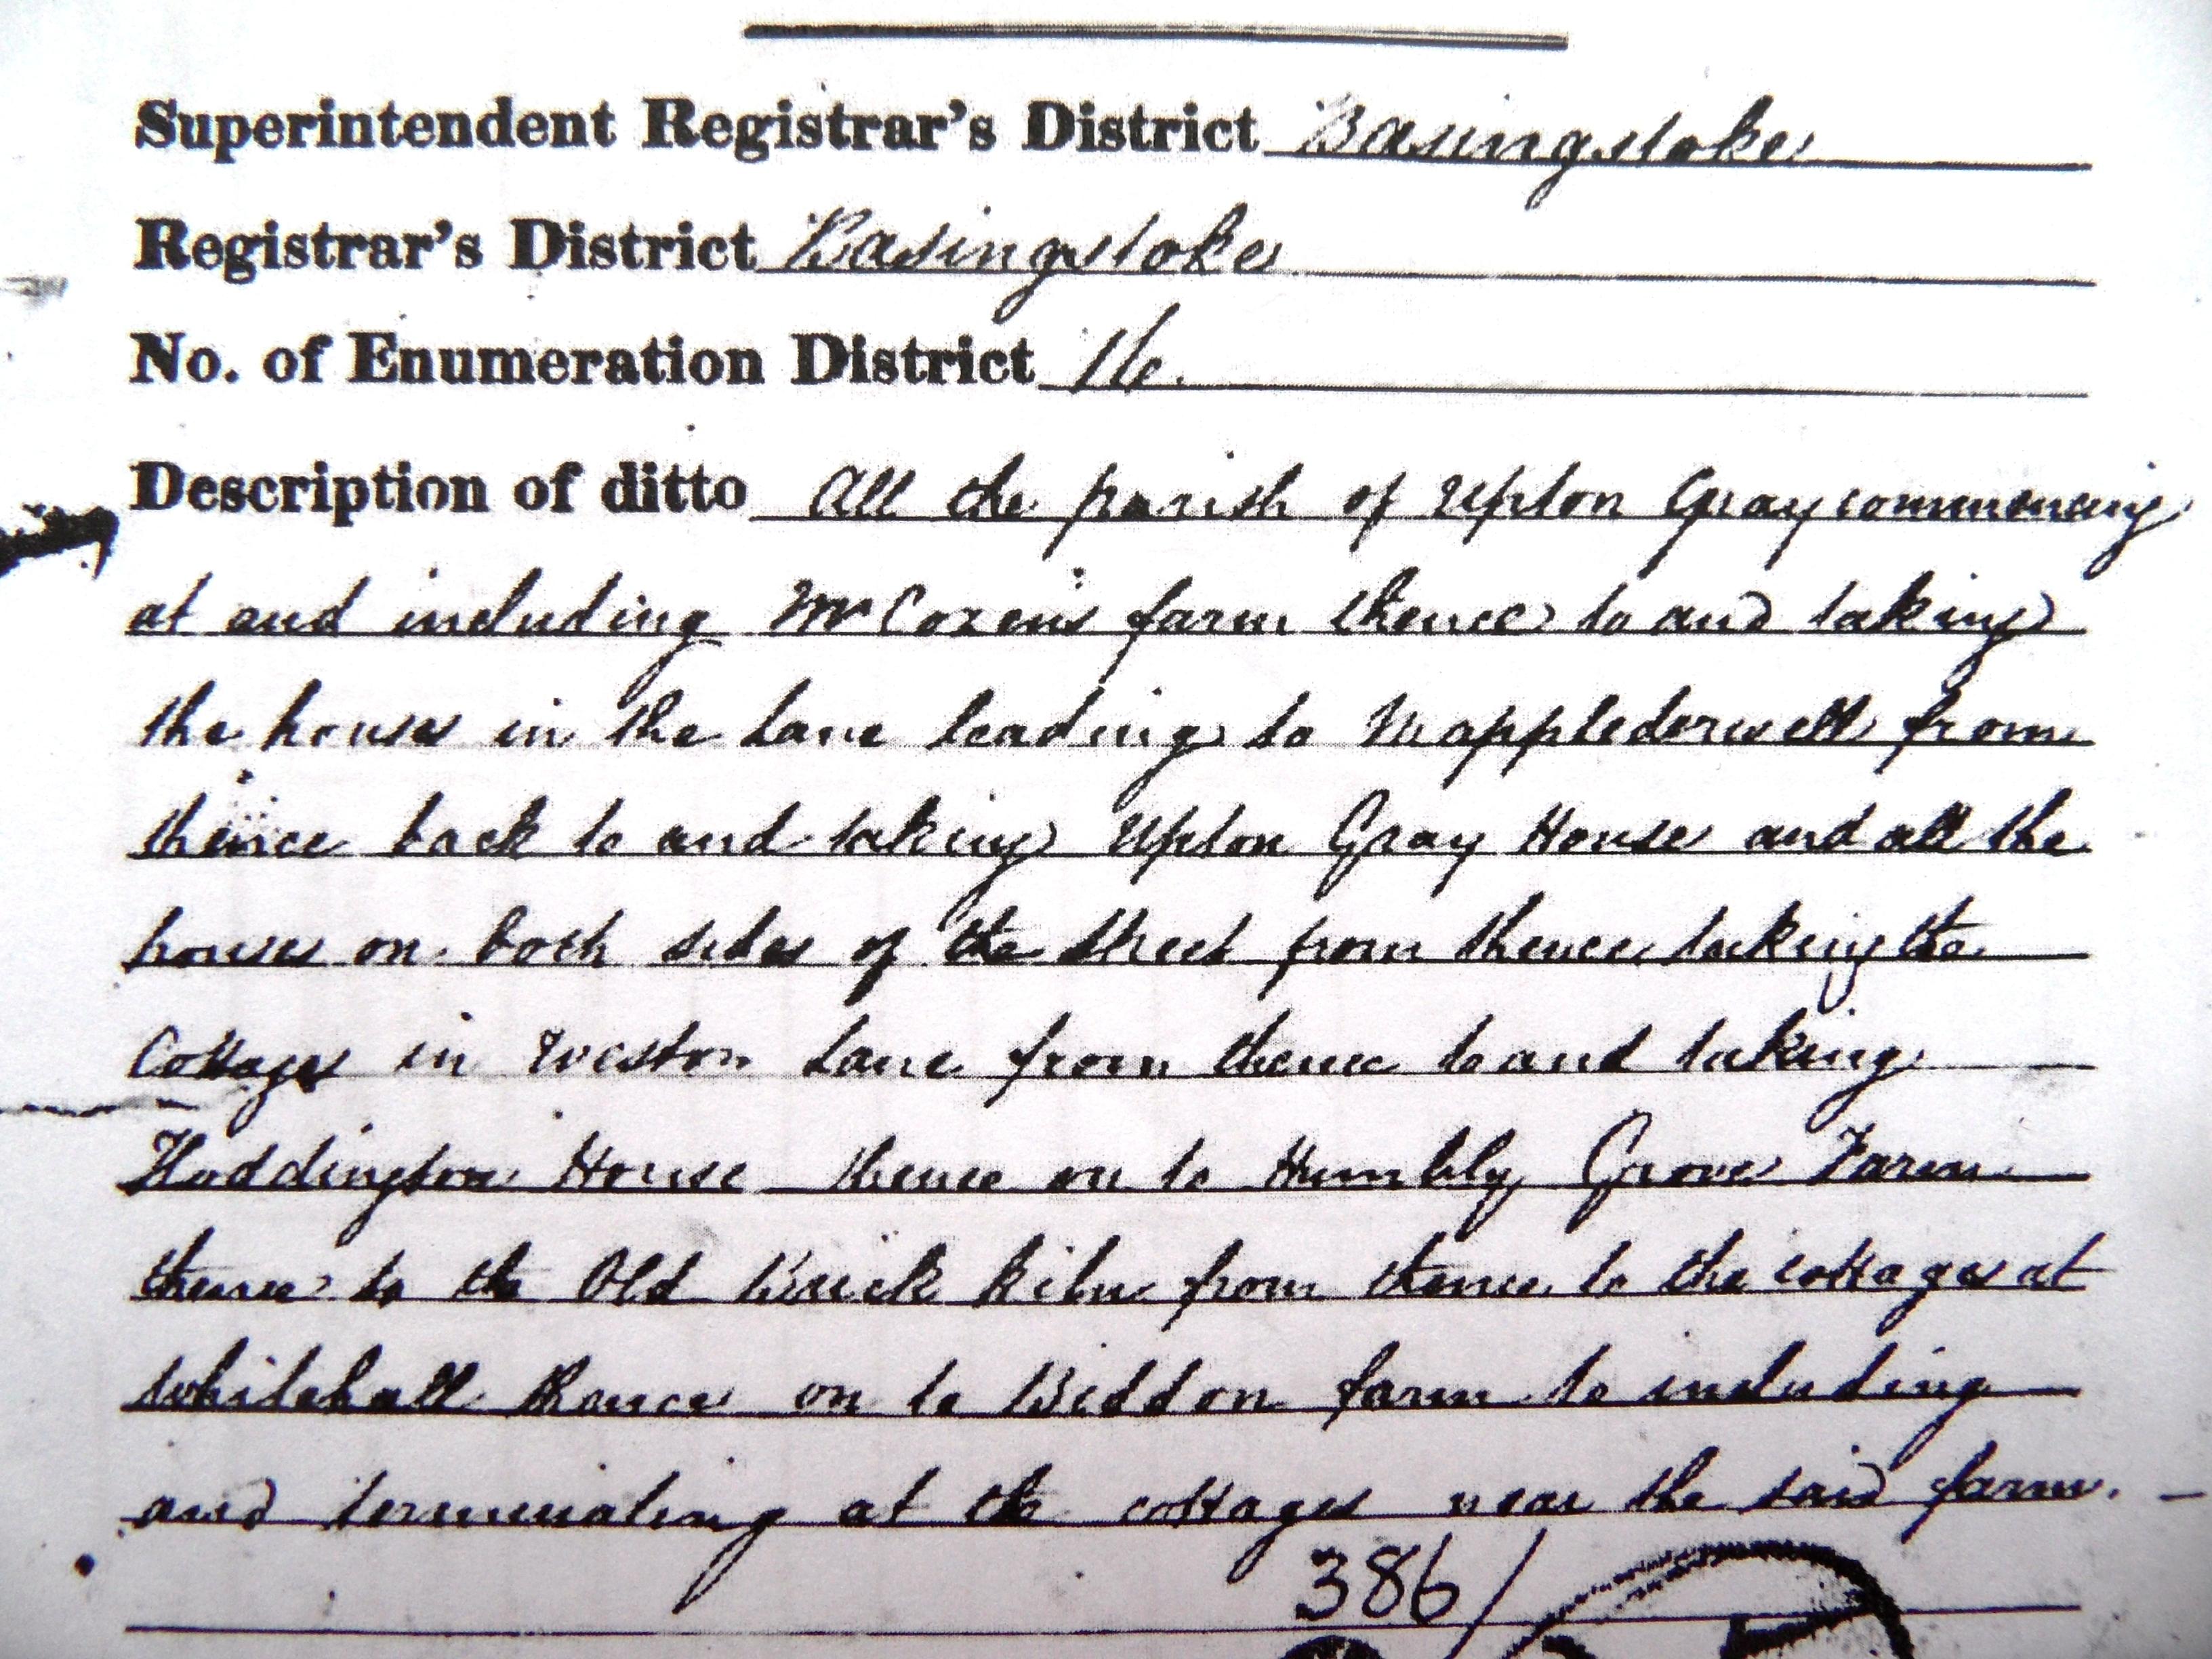 Superintendent Registrar's District Basingstoke
Registrar's District Basingstoke
No. of Enumeration District 16.
Description of ditto All the parish of Upton Gray commencing
at and including Mr Cozens farm thence to and taking
the houses in the Lane leading to Mapplederwell from
thence back to and taking Upton Gray House and all the
houses on both sides of the street from thence taking the
Cottages in Weston Lane from thence to and taking
Hoddington House thence on to Humbly Grove Farm
thence to the Old Brick kiln from thence to the cottages at
Whitehall thence on to Biddon farm to including
and terminating at the cottages near the said farm. –
386/